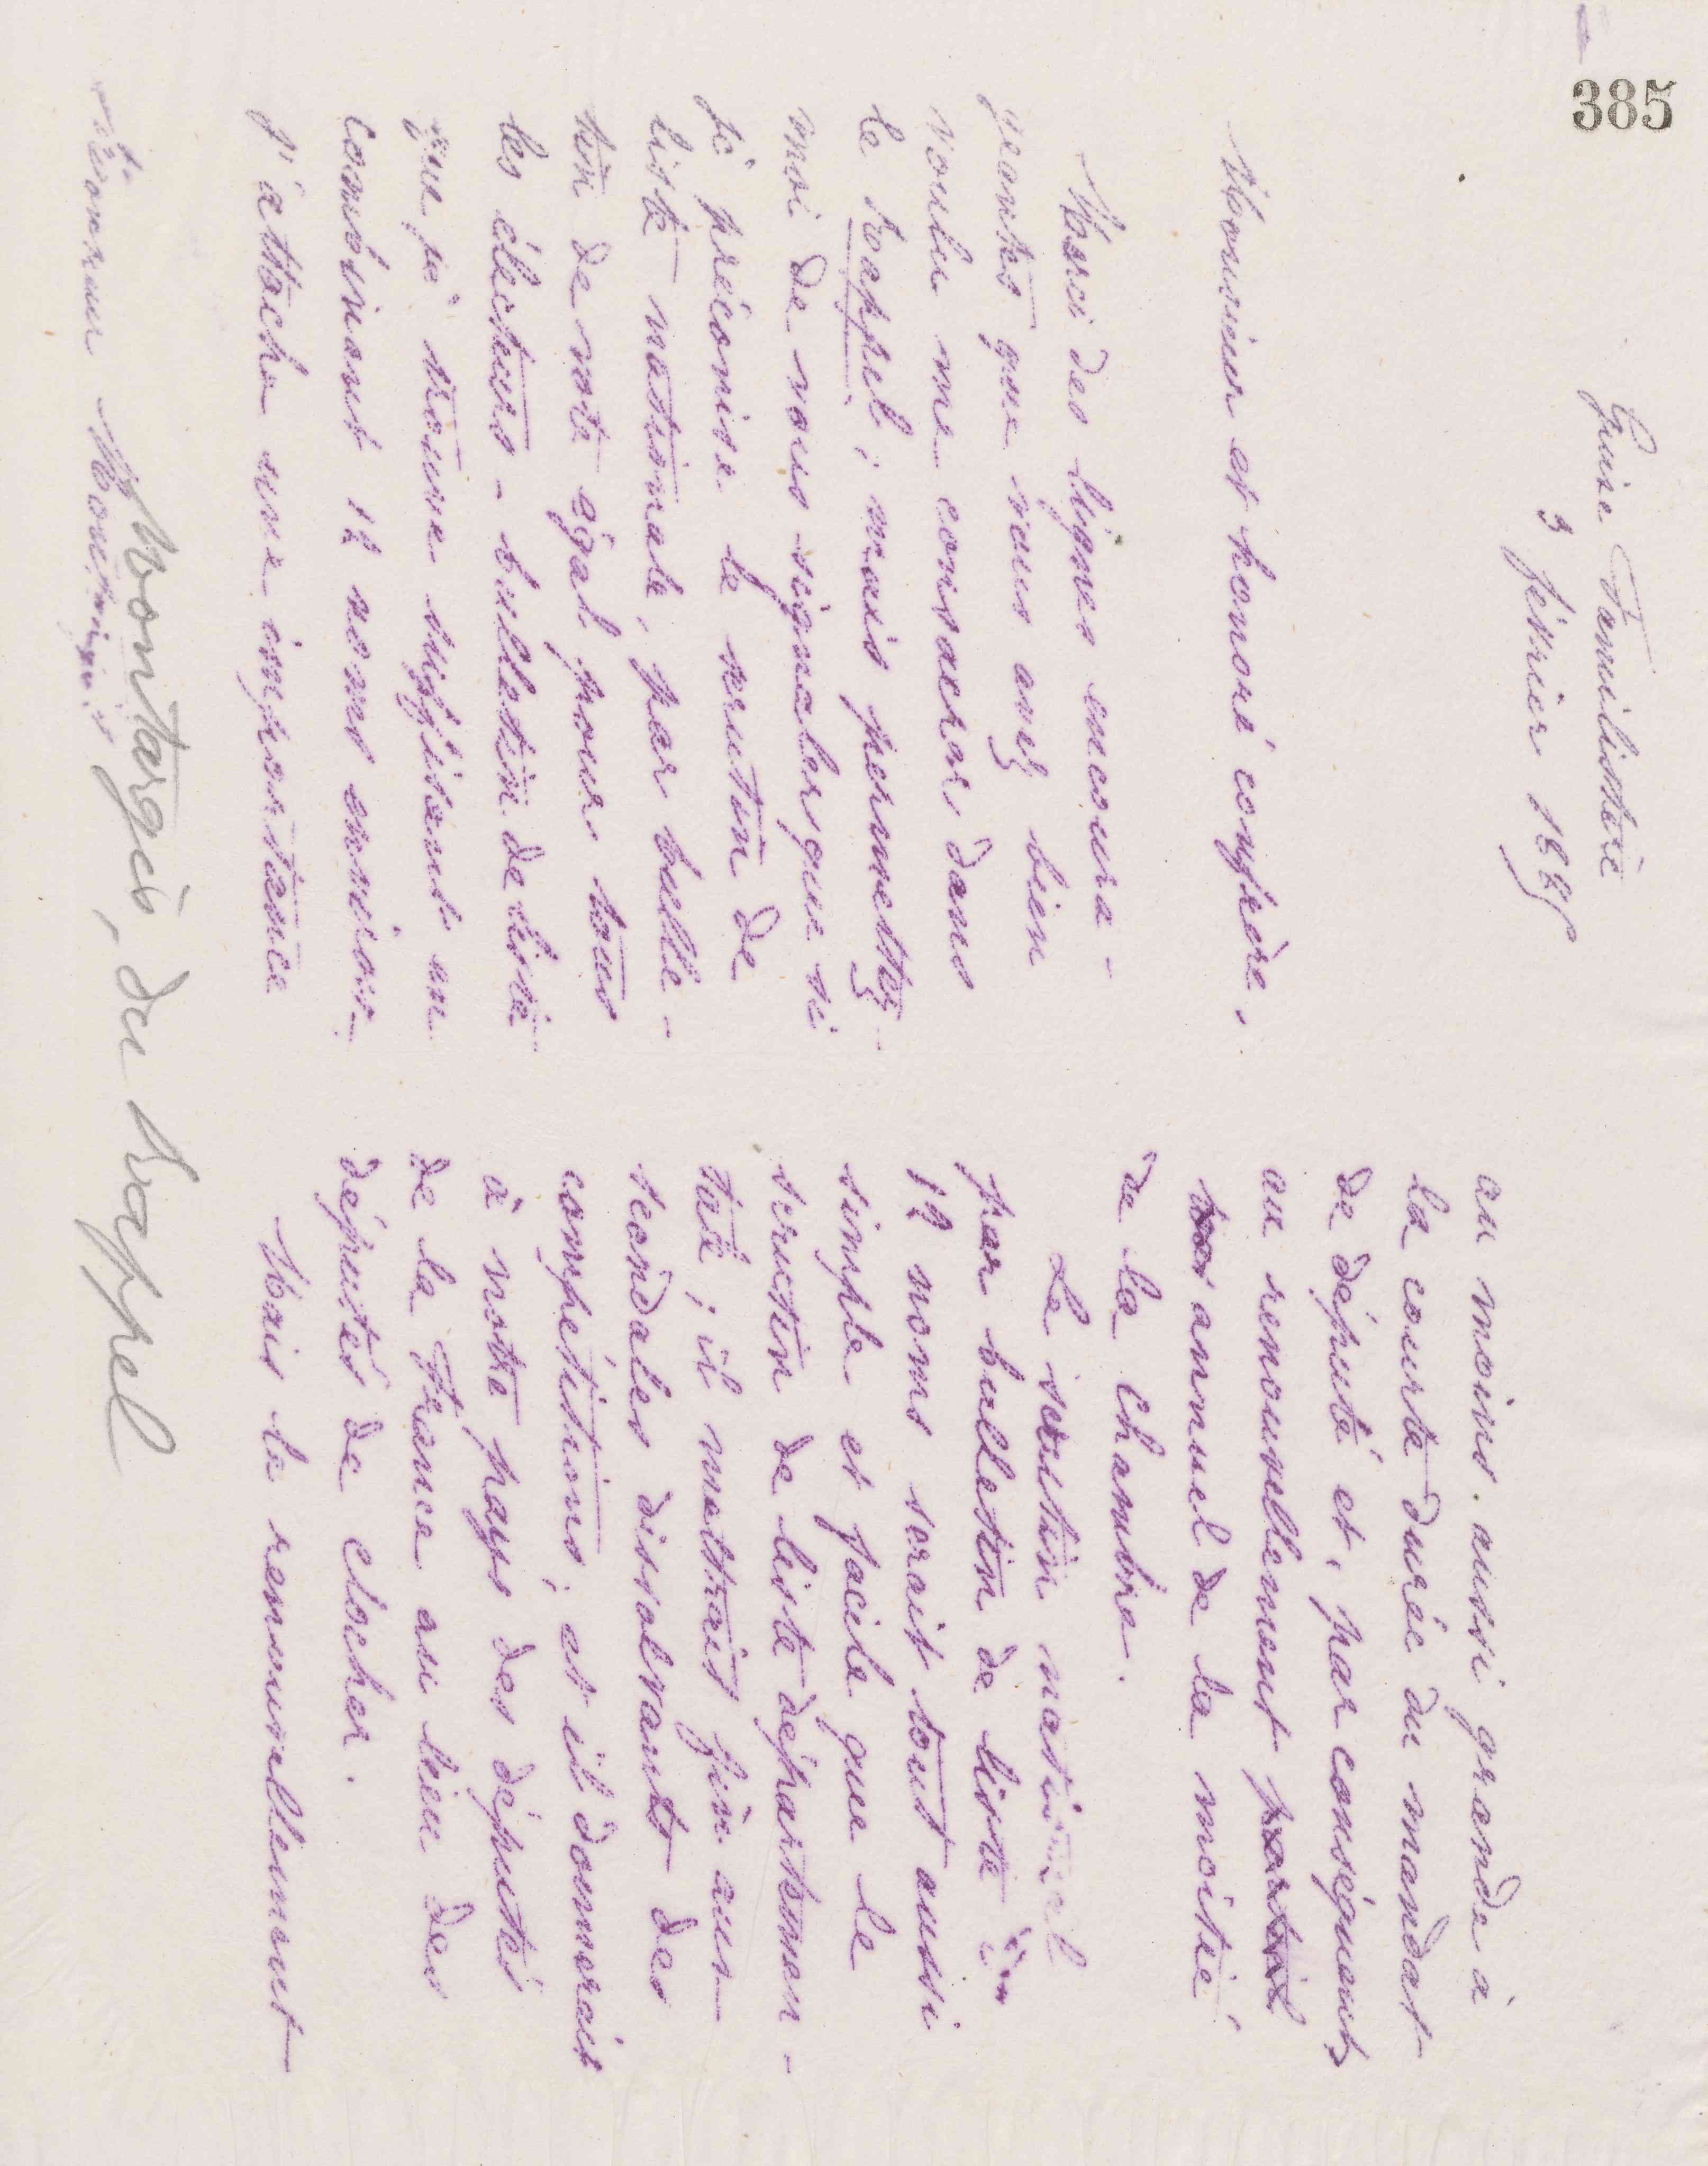 385
Guise Familistère
3 février 1885
Monsieur et honoré confrère,
Merci des lignes encoura-
geantes que vous avez bien
voulu me consacrer dans
le Rappel ; mais permettez-
moi de vous signaler que si
je préconise le scrutin de
liste national, par bulle-
tin de vote égal pour tous
les électeurs - bulletin de liste
que je trouve suffisant en
combinant 12 noms environ -
j'attache une importance
Monsieur
Montargès, du Rappel
au moins aussi grande à
la courte durée du mandat
de député et, par conséquent,
au renouvellement partiel
annuel de la moitié
de la Chambre.
Le scrutin national
par bulletin de liste
12 noms serait tout aussi
simple et facile que le
scrutin de liste départemen-
tale ; il mettrait fin aux
scandales dissolvants des
compétitions, et il donnerait
à notre pays des députés
de la France au lieu des
députés de clocher.
Mais le renouvellement